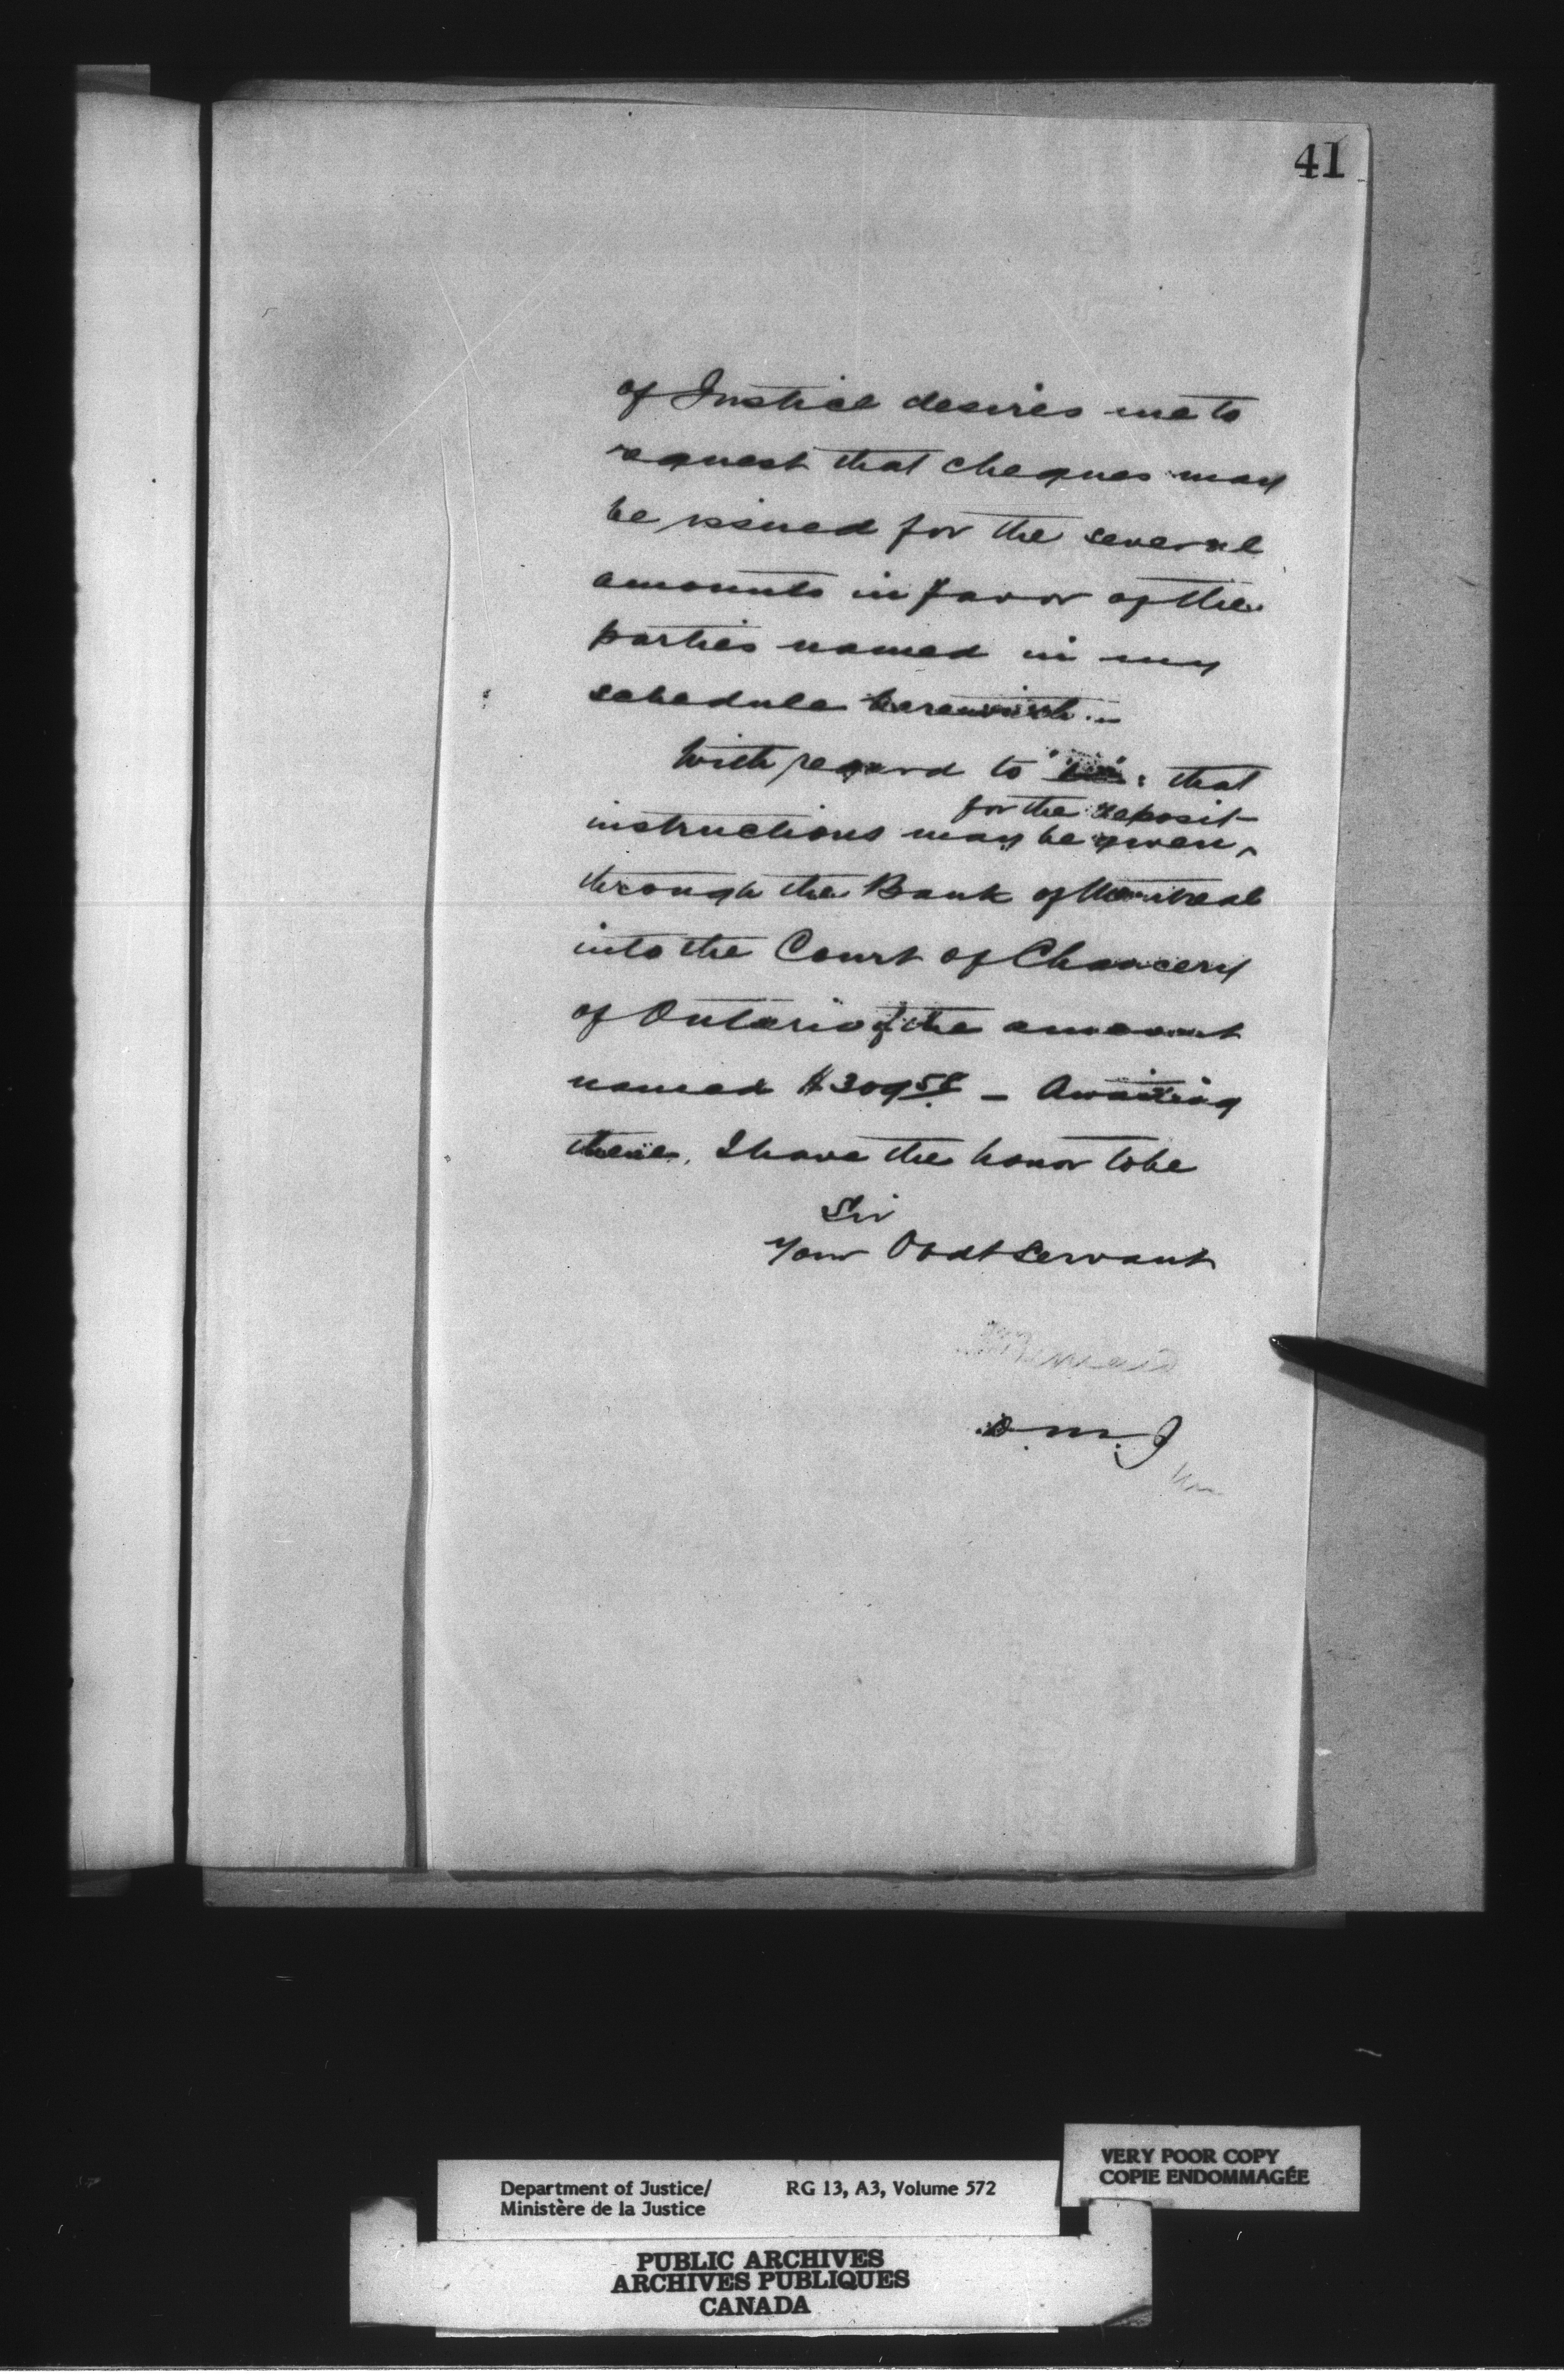 41
of Justice desires me to
request that cheques may
be issued for the several
amounts in favor of the
parties named in my
schedule herewith.
With regard to : that
for the deposit
instructions may be given ^
through the Bank of Montreal
into the Court of Chancery
of Ontario of the amount
named $309 58 — Awaiting
these, I have the honor to be
Sir
Your Obdt Servant
D. M. J
Department of Justice/ RG 13, A3, Volume 572
Ministère de la Justice
VERY POOR COPY
COPIE ENDOMMAGÉE
PUBLIC ARCHIVES
ARCHIVES PUBLIQUES
CANADA